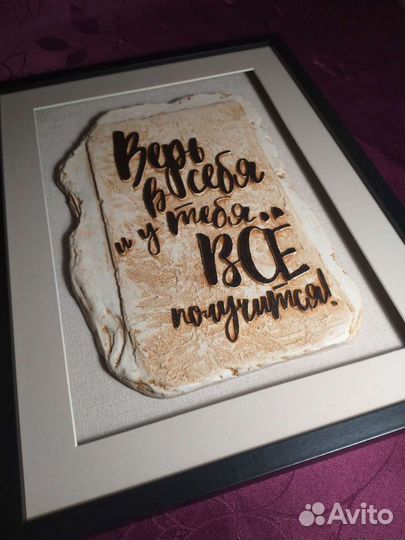 Верь
в себя
и у тебя
ВСЁ
получится!
Avito